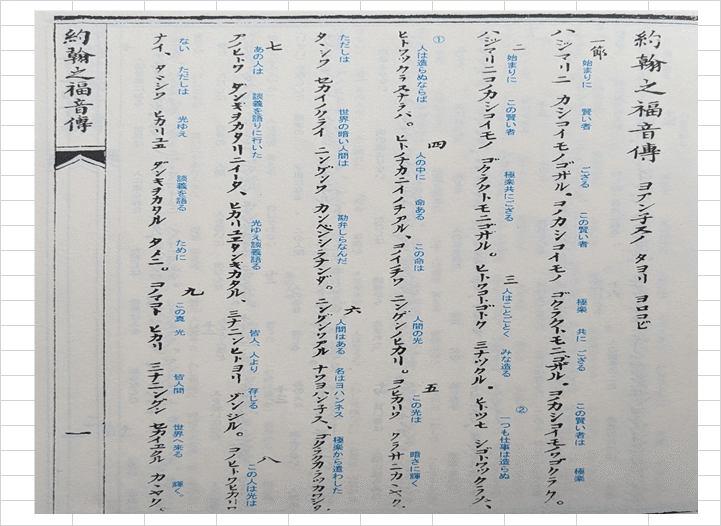 約翰之福音傳 ヨアンナスノ タヨリ ヨロコビ
一節 始まりに 賢い者 ござる この賢い者 極楽 共に ござる この賢い者は 極楽
ハジマリニ カシコイモノゴザル。コノカシコイモノ ゴクラクトモニゴザル。コノカシコイモノワゴクラク。
二 始まりに この賢い者 極楽共にござる 三 人はことごとく みな造る ② 一つも仕事は造らぬ
ハジマリニコノカシコイモノ ゴクラクトモニゴザル。ヒトワコトゴトク ミナツクル。ヒトツモ シゴトワツクラヌ、
① 人は造らぬならば 四 人の中に 命ある この命は 人間の光 五 この光は 暗さに輝く
ヒトワツクラヌナラバ。ヒトノナカニイノチアル、コノイノチワ ニンゲンノヒカリ。コノヒカリワ クラサニカガヤク、
ただしは 世界の暗い人間は 勘弁しらなんだ 六 人間はある 名はヨハンネス 極楽から遣わした
タダシワ セカイノクライ ニンゲンワ カンベンシラナンダ。ニンゲンワアル ナワヨハンナス、ゴクラクカラツカワシタ。
七 あの人は 談義を語りに行いた 光ゆえ談義語る 皆人、人より 存じる 八 この人は光は
アノヒトワ ダンギヲカタリニイータ、ヒカリユエダンギカタル、ミナニンヒトヨリ ゾンジル。コノヒトワヒカリワ
ない ただしは 光ゆえ 談義を語る ために 九 この真 光 皆人間 世界へ来る 輝く。
ナイ、タダシワ ヒカリユエ ダンギヲカタル タメニ。コノマコト ヒカリ ミナニンゲン セカイエクル カガヤク。
約翰之福音傳 一